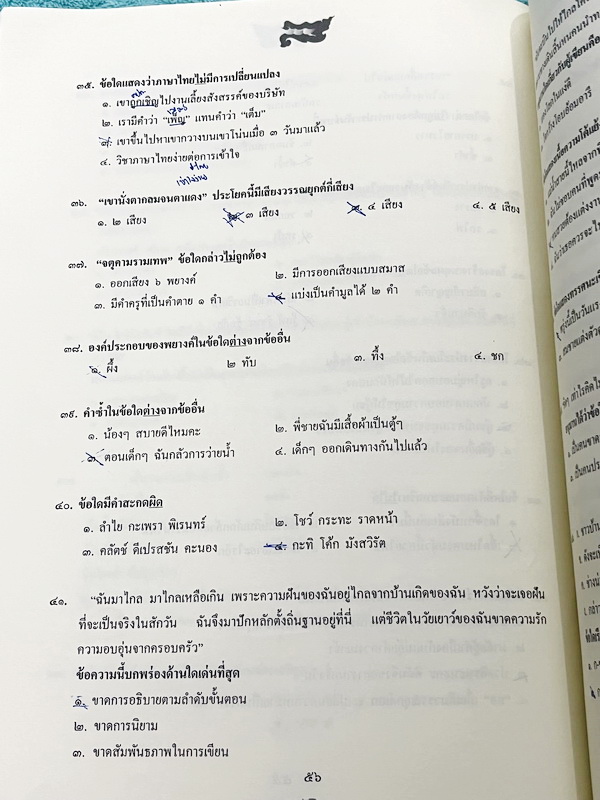 ๓๕. ข้อใดแสดงว่าภาษาไทยไม่มีการเปลี่ยนแปลง
๑. เขาถูกเชิญไปงานเลี้ยงสังสรรค์ของบริษัท
๒. เรามีคำว่า “เพ็ญ” แทนคำว่า “เต็ม”
๓. เขาขึ้นไปหาเขากวางบนเขาโน่นเมื่อ ๓ วันมาแล้ว
๔. วิชาภาษาไทยง่ายต่อการเข้าใจ
๓๖. “เขานั่งตากลมจนตาแดง” ประโยคนี้มีเสียงวรรณยุกต์กี่เสียง
๑. ๒ เสียง ๒. ๓ เสียง ๓. ๔ เสียง ๔. ๕ เสียง
๓๗. “จตุคามรามเทพ” ข้อใดกล่าวไม่ถูกต้อง
๑. ออกเสียง ๖ พยางค์ ๒. มีการออกเสียงแบบสมาส
๓. มีคำครุที่เป็นคำตาย ๑ คำ ๔. แบ่งเป็นคำมูลได้ ๒ คำ
๓๘. องค์ประกอบของพยางค์ในข้อใดต่างจากข้ออื่น
๑. ผึ้ง ๒ ทับ ๓. ทึ้ง ๔. ชก
๓๙. คำซ้ำในข้อใดต่างจากข้ออื่น
๑. น้องๆ สบายดีไหมคะ ๒. พี่ชายฉันมีเสื้อผ้าเป็นตู้ๆ
๓. ตอนเด็กๆ ฉันกลัวการว่ายน้ำ ๔. เด็กๆ ออกเดินทางกันไปแล้ว
๔๐. ข้อใดมีคำสะกดผิด
๑. ลำไย กะเพรา พิเรนทร์ ๒. โชว์ กระทะ ราดหน้า
๓. คลัตช์ ดีเปรสชัน คะนอง ๔. กะทิ โค้ก มังสวิรัต
๔๑. “ฉันมาไกล มาไกลเหลือเกิน เพราะความฝันของฉันอยู่ไกลจากบ้านเกิดของฉัน หวังว่าจะเจอฝัน
ที่จะเป็นจริงในสักวัน ฉันจึงมาปักหลักตั้งถิ่นฐานอยู่ที่นี่ แต่ชีวิตในวัยเยาว์ของฉันขาดความรัก
ความอบอุ่นจากครอบครัว”
ข้อความนี้บกพร่องด้านใดเด่นที่สุด
๑. ขาดการอธิบายตามลำดับขั้นตอน
๒. ขาดการนิยาม
๓. ขาดสัมพันธภาพในการเขียน
๕๖